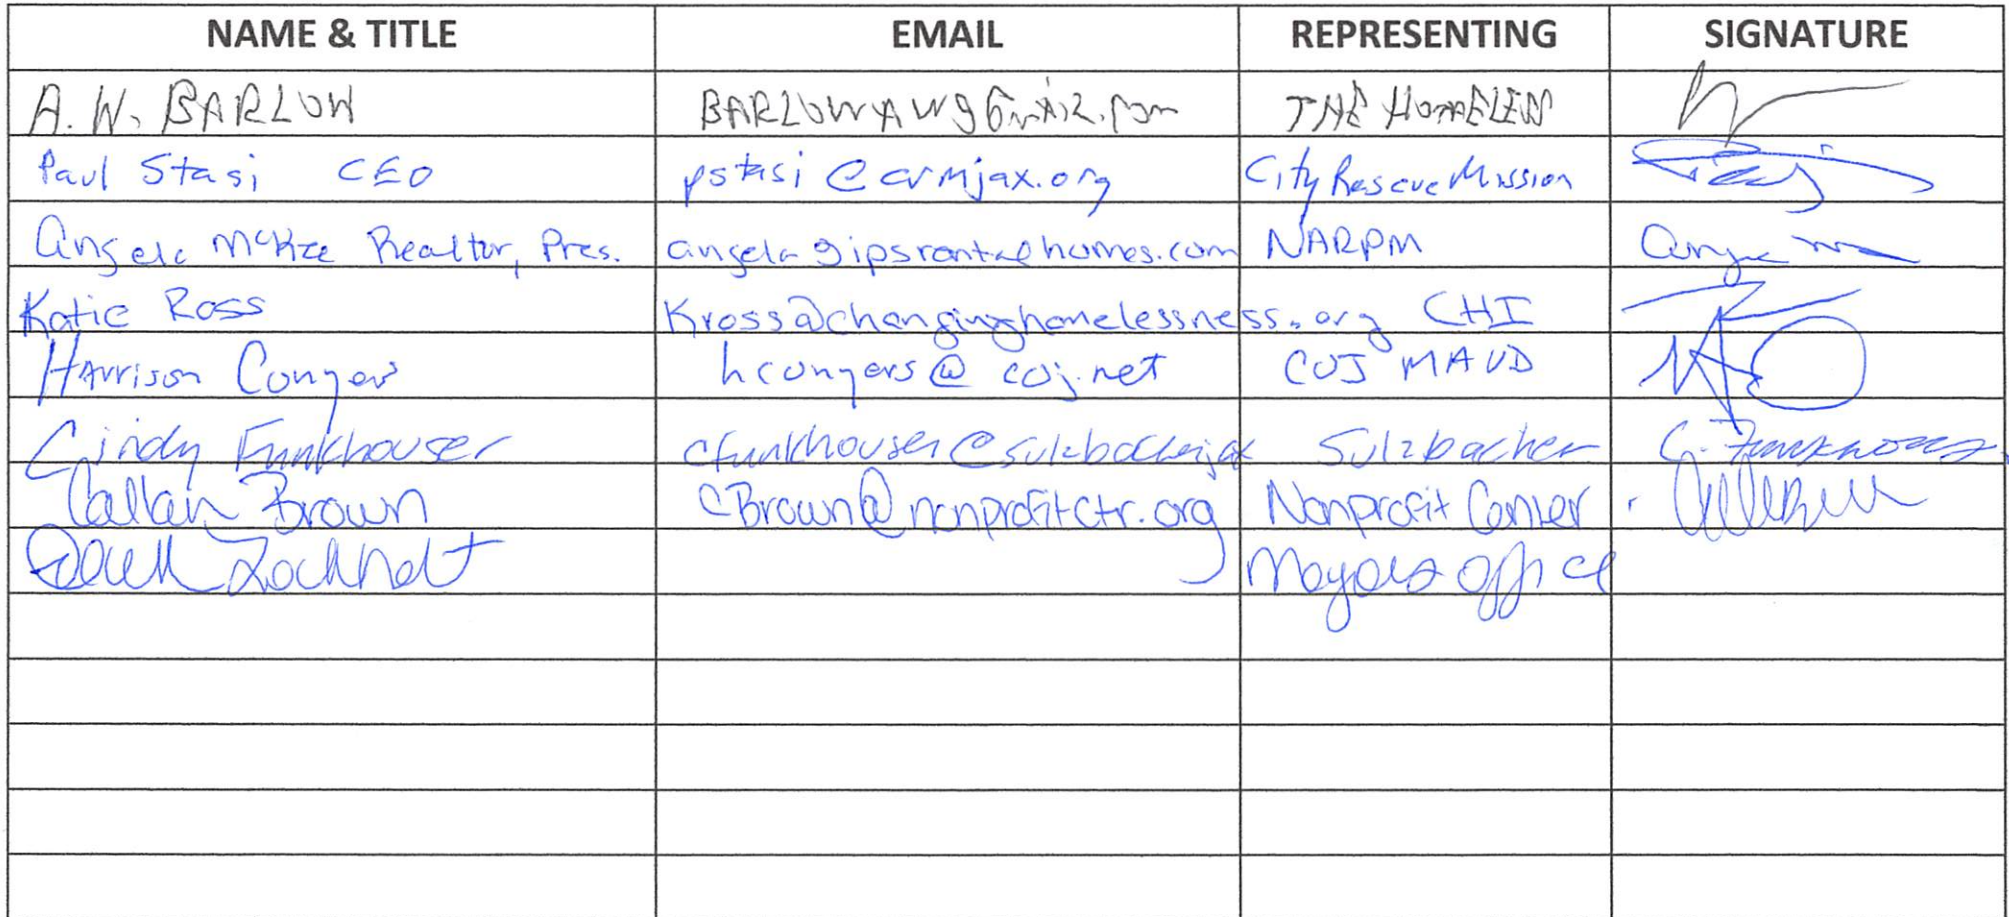 NAME & TITLE EMAIL REPRESENTING SIGNATURE
A. W. BARLOW BARLOWAW9GMAIL.COM THE HOMELESS
Paul Stasi CEO pstasi@crmjax.org City Rescue Mission
Angela McKee Realtor, Pres. angela@ipsrentalhomes.com NARPM
Katie Ross Kross@changinghomelessness.org CHI
Harrison Conyers hconyers@coj.net COJ MAVD
Cindy Funkhouser cfunkhouser@sulzbacherjax Sulzbacher C. Funkhouser
Callan Brown CBrown@nonprofitctr.org Nonprofit Center
Lockhart Mayors Office